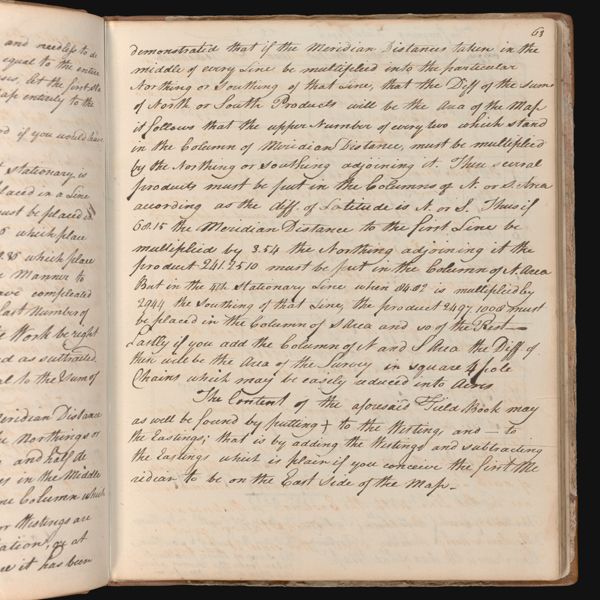 and needless to do
equal to the entire
let the first
map entirely to the
if you would have
stationary is
placed in a Line
must be placed
which place
which place
Manner to
have compleated
last Number of
Work be right
as subtracted
to the Sum of
Meridian Distance
Northings or
and half
in the Middle
Column which
or Westings are
at
it has been
63
demonstrated that if the Meridian Distances taken in the
middle of every Line be multiplied into the particular
Northing or Southing of that Line, that the Diff of the sums
of North or South Products will be the Area of the Map
it follows that the upper Number of every two which stand
in the Column of Meridian Distance, must be multiplied
by the Northing or Southing adjoining it. These several
products must be put in the Columns of N. or S. Area
according as the diff. of Latitude is N. or S. Thus if
68.15 the Meridian Distance to the first Line be
multiplied by 3.54 the Northing adjoining it the
product 241.2510 must be put in the Column of N. Area
But in the 4th Stationary Line when 84.82 is multiplied by
2944 the Southing of that Line, the product 2497.1008 must
be placed in the Column of S Area and so of the Rest —
Lastly if you add the Column of N and S Area the Diff of
them will be the Area of the Survey in square 4 pole
Chains which may be easily reduced into Acres
The Content of the aforesaid Field Book may
as will be found by putting + to the Westing, and — to
the Eastings; that is by adding the Westings and subtracting
the Eastings which is plain if you conceive the first Me
ridean to be on the East Side of the Map —